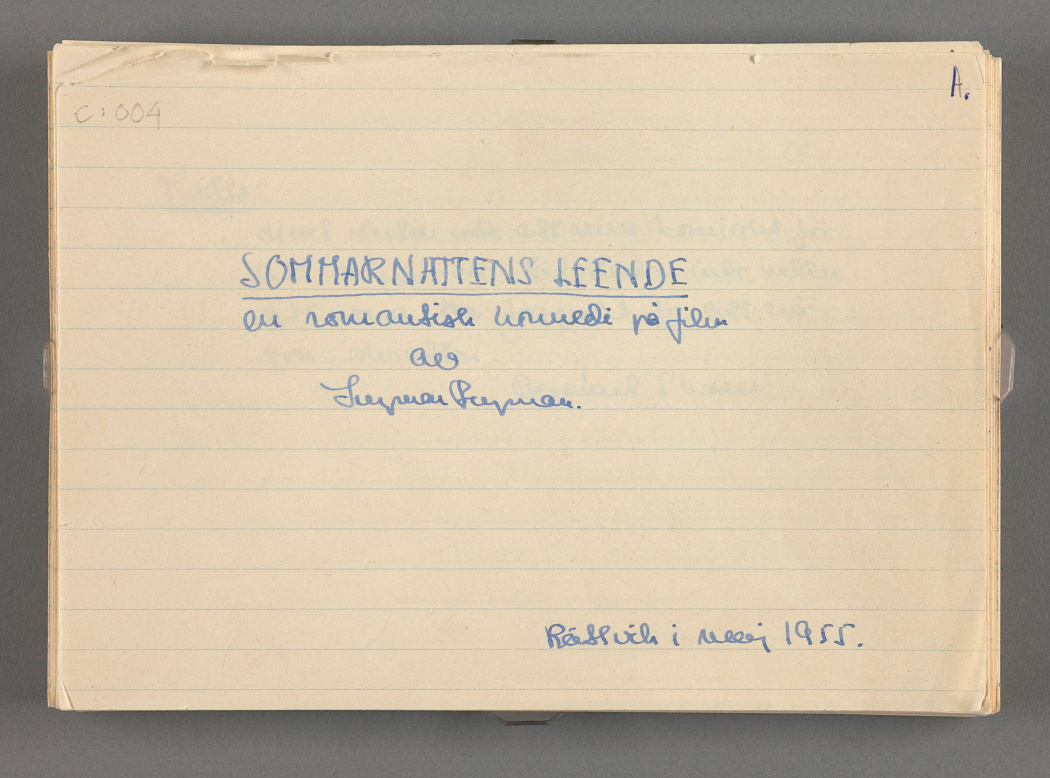 A.
C:004
SOMMARNATTENS LEENDE
en romantisk komedi på film
av
Ingmar Bergman.
Rättvik i maj 1955.